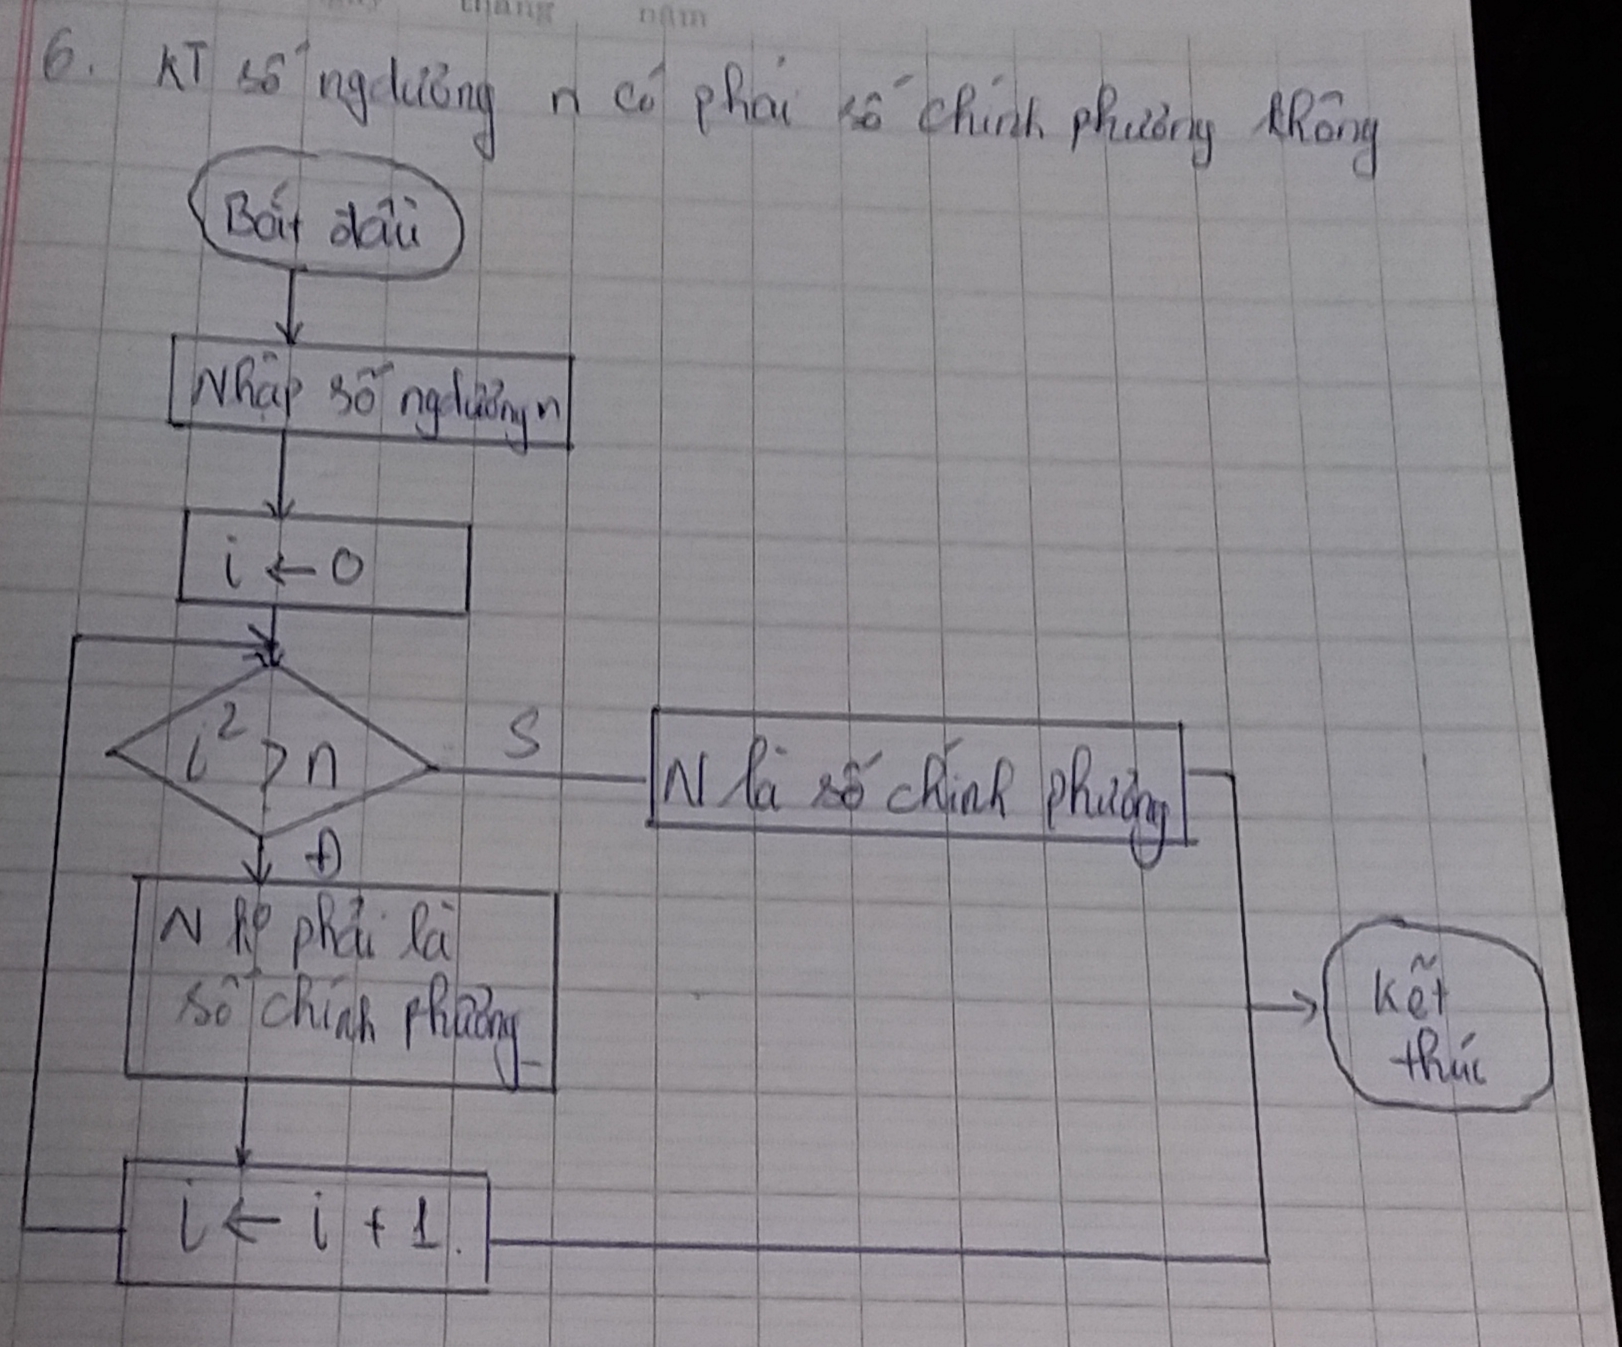 tháng năm
6. KT số ngdương n có phải số chính phương không
Bắt đầu
Nhập số ngdương n
i ← 0
i² > n
S
N là số chính phương
Đ
N ko phải là
số chính phương
Kết
thúc
i ← i + 1.